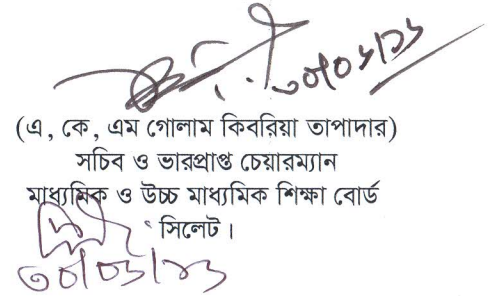 ৩০/০১/১৯
(এ, কে, এম গোলাম কিবরিয়া তাপাদার)
সচিব ও ভারপ্রাপ্ত চেয়ারম্যান
মাধ্যমিক ও উচ্চ মাধ্যমিক শিক্ষা বোর্ড
সিলেট।
৩০/০১/১৯